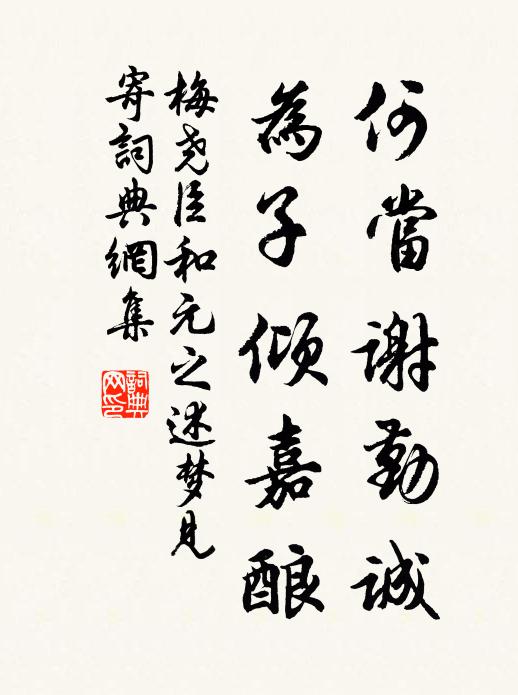 何當謝勤誠
為子傾嘉酿
梅尧臣和元之述梦見
寄詞典網集
詞典网印